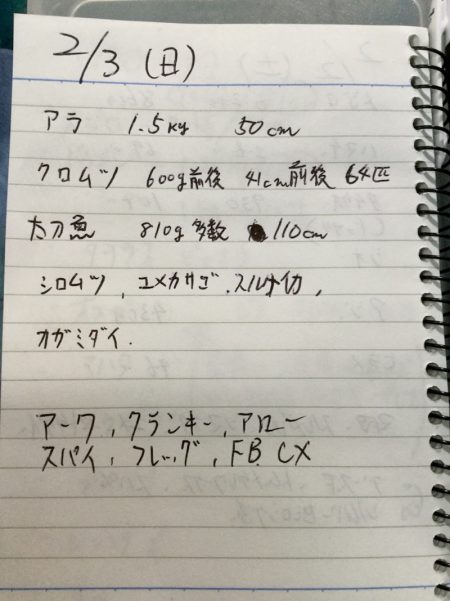 2/3 (日)
アラ 1.5kg 50cm
クロムツ 600g前後 41cm前後 64匹
太刀魚 810g 多数 110cm
シロムツ、ユメカサゴ、スルメイカ、
オガミダイ.
アーク、クランキー、アロー
スパイ、フレッグ、FB CX